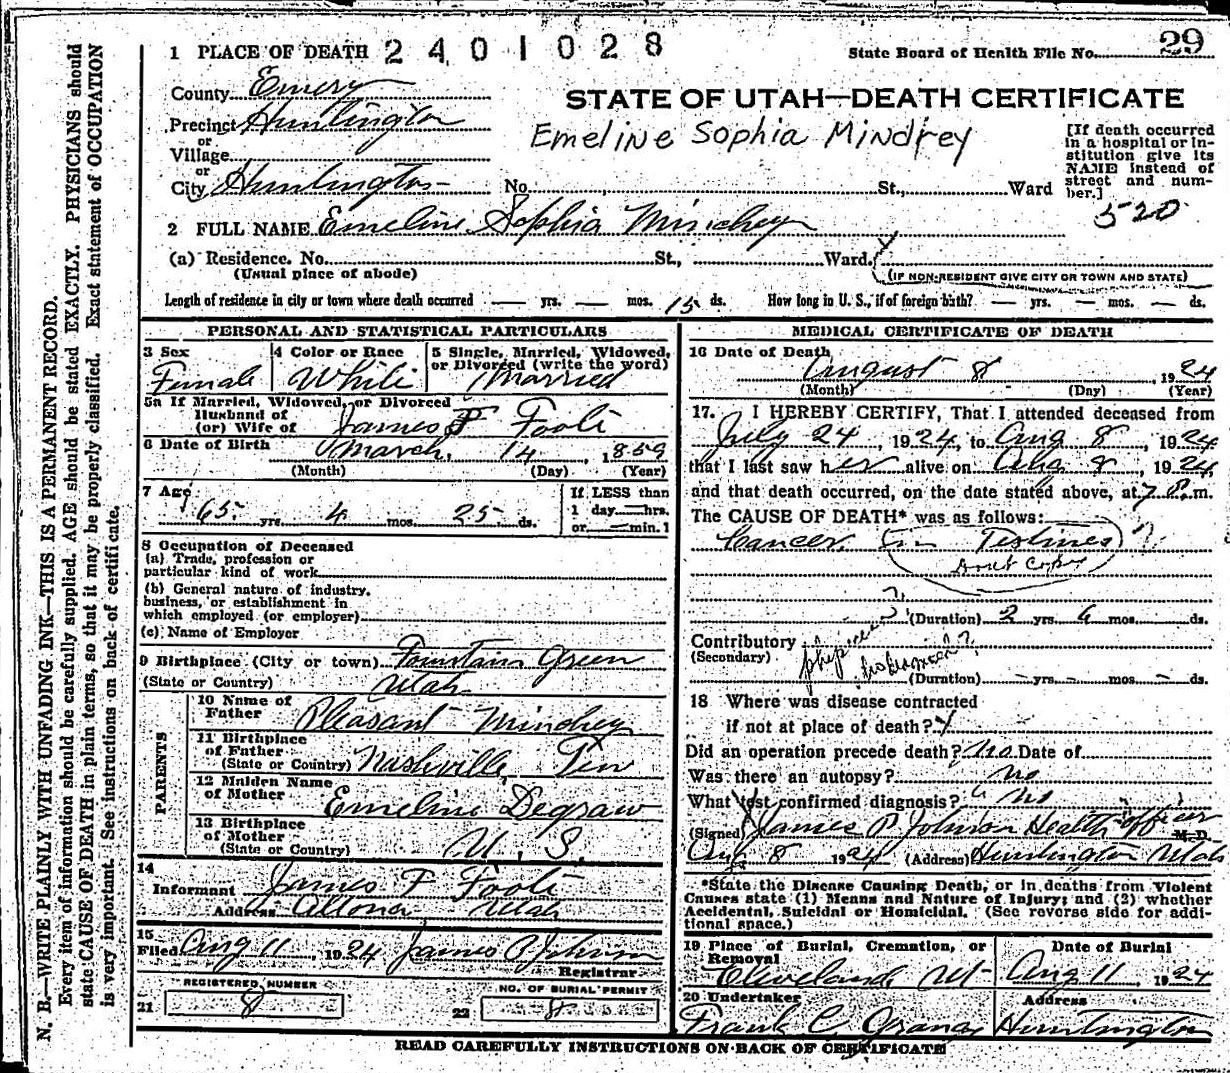 N. B.—WRITE PLAINLY WITH UNFADING INK—THIS IS A PERMANENT RECORD.
Every item of information should be carefully supplied. AGE should be stated EXACTLY. PHYSICIANS should
state CAUSE OF DEATH in plain terms, so that it may be properly classified. Exact statement of OCCUPATION
is very important. See instructions on back of certificate.
1 PLACE OF DEATH 2401028
State Board of Health File No. 29
County Emery
STATE OF UTAH—DEATH CERTIFICATE
Precinct Huntington
Emeline Sophia Mindrey
or
Village
or
City Huntington No. St., Ward
[If death occurred
in a hospital or in-
stitution give its
NAME instead of
street and num-
ber.]
520
2 FULL NAME Emeline Sophia Minchey
(a) Residence. No. St., Ward.
(Usual place of abode) (IF NON-RESIDENT GIVE CITY OR TOWN AND STATE)
Length of residence in city or town where death occurred — yrs. — mos. 15 ds. How long in U. S., if of foreign birth? — yrs. — mos. — ds.
PERSONAL AND STATISTICAL PARTICULARS
3 Sex 4 Color or Race 5 Single, Married, Widowed,
or Divorced (write the word)
Female White Married
5a If Married, Widowed, or Divorced
Husband of
(or) Wife of James F Foote
6 Date of Birth March 14, 1859
(Month) (Day) (Year)
7 Age 65 yrs. 4 mos. 25 ds.
If LESS than
1 day — hrs.
or — min. 1
8 Occupation of Deceased
(a) Trade, profession or
particular kind of work
(b) General nature of industry,
business, or establishment in
which employed (or employer)
(c) Name of Employer
9 Birthplace (City or town) Fountain Green
(State or Country) Utah
PARENTS
10 Name of
Father Pleasant Minchey
11 Birthplace
of Father
(State or Country) Nashville, Tin
12 Maiden Name
of Mother Emeline Degraw
13 Birthplace
of Mother
(State or Country) U. S.
14
Informant James F Foote
Address Altona Utah
15
Filed Aug 11, 1924 James P Johnson
Registrar
REGISTERED NUMBER
21 8
NO. OF BURIAL PERMIT
22 8
MEDICAL CERTIFICATE OF DEATH
16 Date of Death
August 8, 1924
(Month) (Day) (Year)
17. I HEREBY CERTIFY, That I attended deceased from
July 24, 1924, to Aug 8, 1924
that I last saw her alive on Aug 8, 1924
and that death occurred, on the date stated above, at 7 P. m.
The CAUSE OF DEATH* was as follows:
Cancer. in Testines ?
Dont copy
(Duration) 2 yrs. 6 mos. ds.
Contributory
(Secondary)
(Duration) — yrs. — mos. — ds.
18 Where was disease contracted
if not at place of death?
Did an operation precede death? No. Date of
Was there an autopsy? no
What test confirmed diagnosis? no
(Signed) James P Johnson Health officer M. D.
Aug 8 1924 (Address) Huntington Utah
*State the Disease Causing Death, or in deaths from Violent
Causes state (1) Means and Nature of Injury; and (2) whether
Accidental, Suicidal or Homicidal. (See reverse side for addi-
tional space.)
19 Place of Burial, Cremation, or
Removal
Date of Burial
Cleveland Ut Aug 11 1924
20 Undertaker Address
Frank C Huntington
READ CAREFULLY INSTRUCTIONS ON BACK OF CERTIFICATE